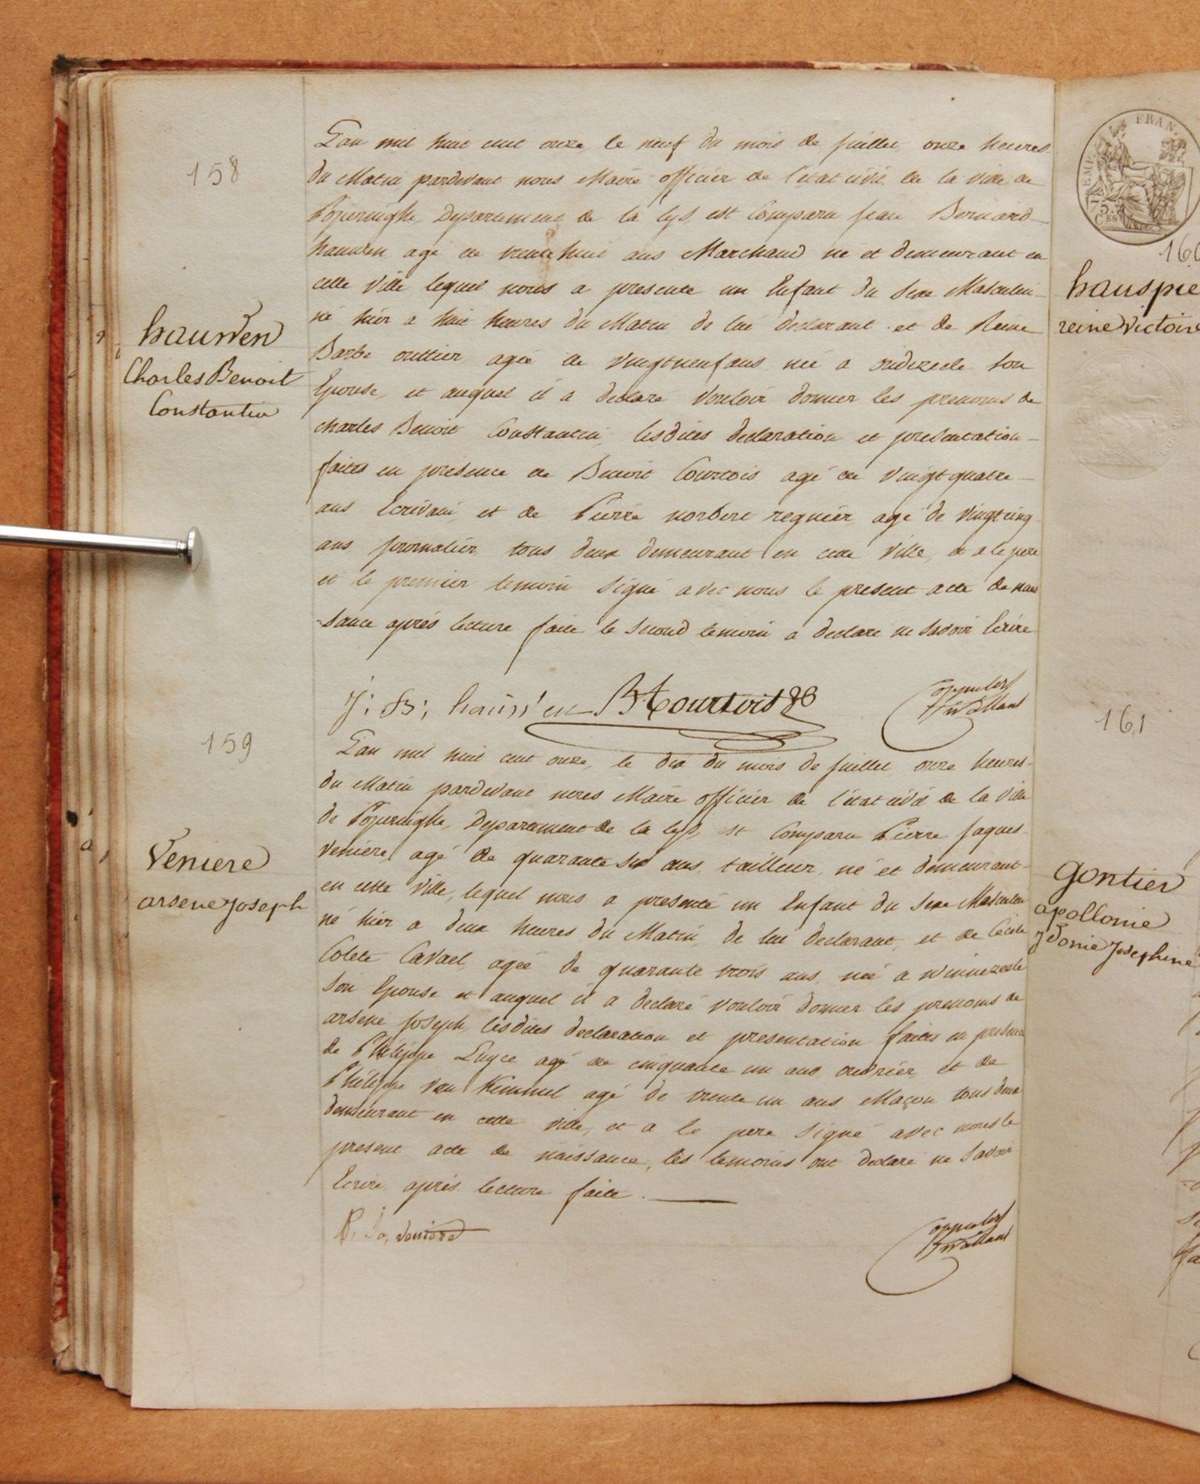 158
hauwen
Charles Benoit
Constantin
L'an mil huit cent onze, le neuf du mois de juillet, onze heures
du Matin pardevant nous Maire officier de l'état civil de la ville de
Poperinghe, Departement de la Lys, est Comparu jean Bernard
hauwen agé de trente huit ans Marchand né et demeurant en
cette Ville lequel nous a presenté un Enfant du Sexe Masculin
né hier a huit heures du Matin de lui declarant et de Reine
Barbe outtier agée de vingtneuf ans née a oudezeele son
Epouse, et auquel il a declaré Vouloir donner les prenoms de
charles Benoit Constantin lesdites declaration et presentation
faites en présence de Benoit Courtois agé de Vingt quatre
ans Ecrivain et de Pierre norbert regnier agé de Vingtcinq
ans journalier tous deux demeurant en cette Ville, et a le pere
et le premier temoin signé avec nous le present acte de nais
sance après lecture faite le second temoin a declaré ne Savoir Ecrire
J: B: hauwen B Courtois
159
Veniere
arsene joseph
L'an mil huit cent onze, le dix du mois de juillet onze heures
du Matin pardevant nous Maire officier de l'état civil de la Ville
de Poperinghe, Departement de la Lys, est Comparu Pierre jaques
Veniere agé de quarante six ans tailleur né et demeurant
en cette Ville, lequel nous a presenté un Enfant du Sexe Masculin
né hier a deux heures du Matin, de lui declarant, et de Cécile
Colete Cavael agée de quarante trois ans née a winnezeele
son Epouse et auquel il a declaré vouloir donner les prenoms de
arsene joseph lesdites declaration et presentation faites en presence
de Philippe Luyce agé de cinquante un ans ouvrier et de
Philippe Van Kemmel agé de trente un ans Maçon tous deux
demeurant en cette ville, et a le pere signé avec nous le
present acte de naissance, les temoins ont declaré ne Savoir
Ecrire après lecture faite.
P. Ja. Veniere
160
hauspie
reine Victoire
161
gontier
apollonie
ydonie Josephine